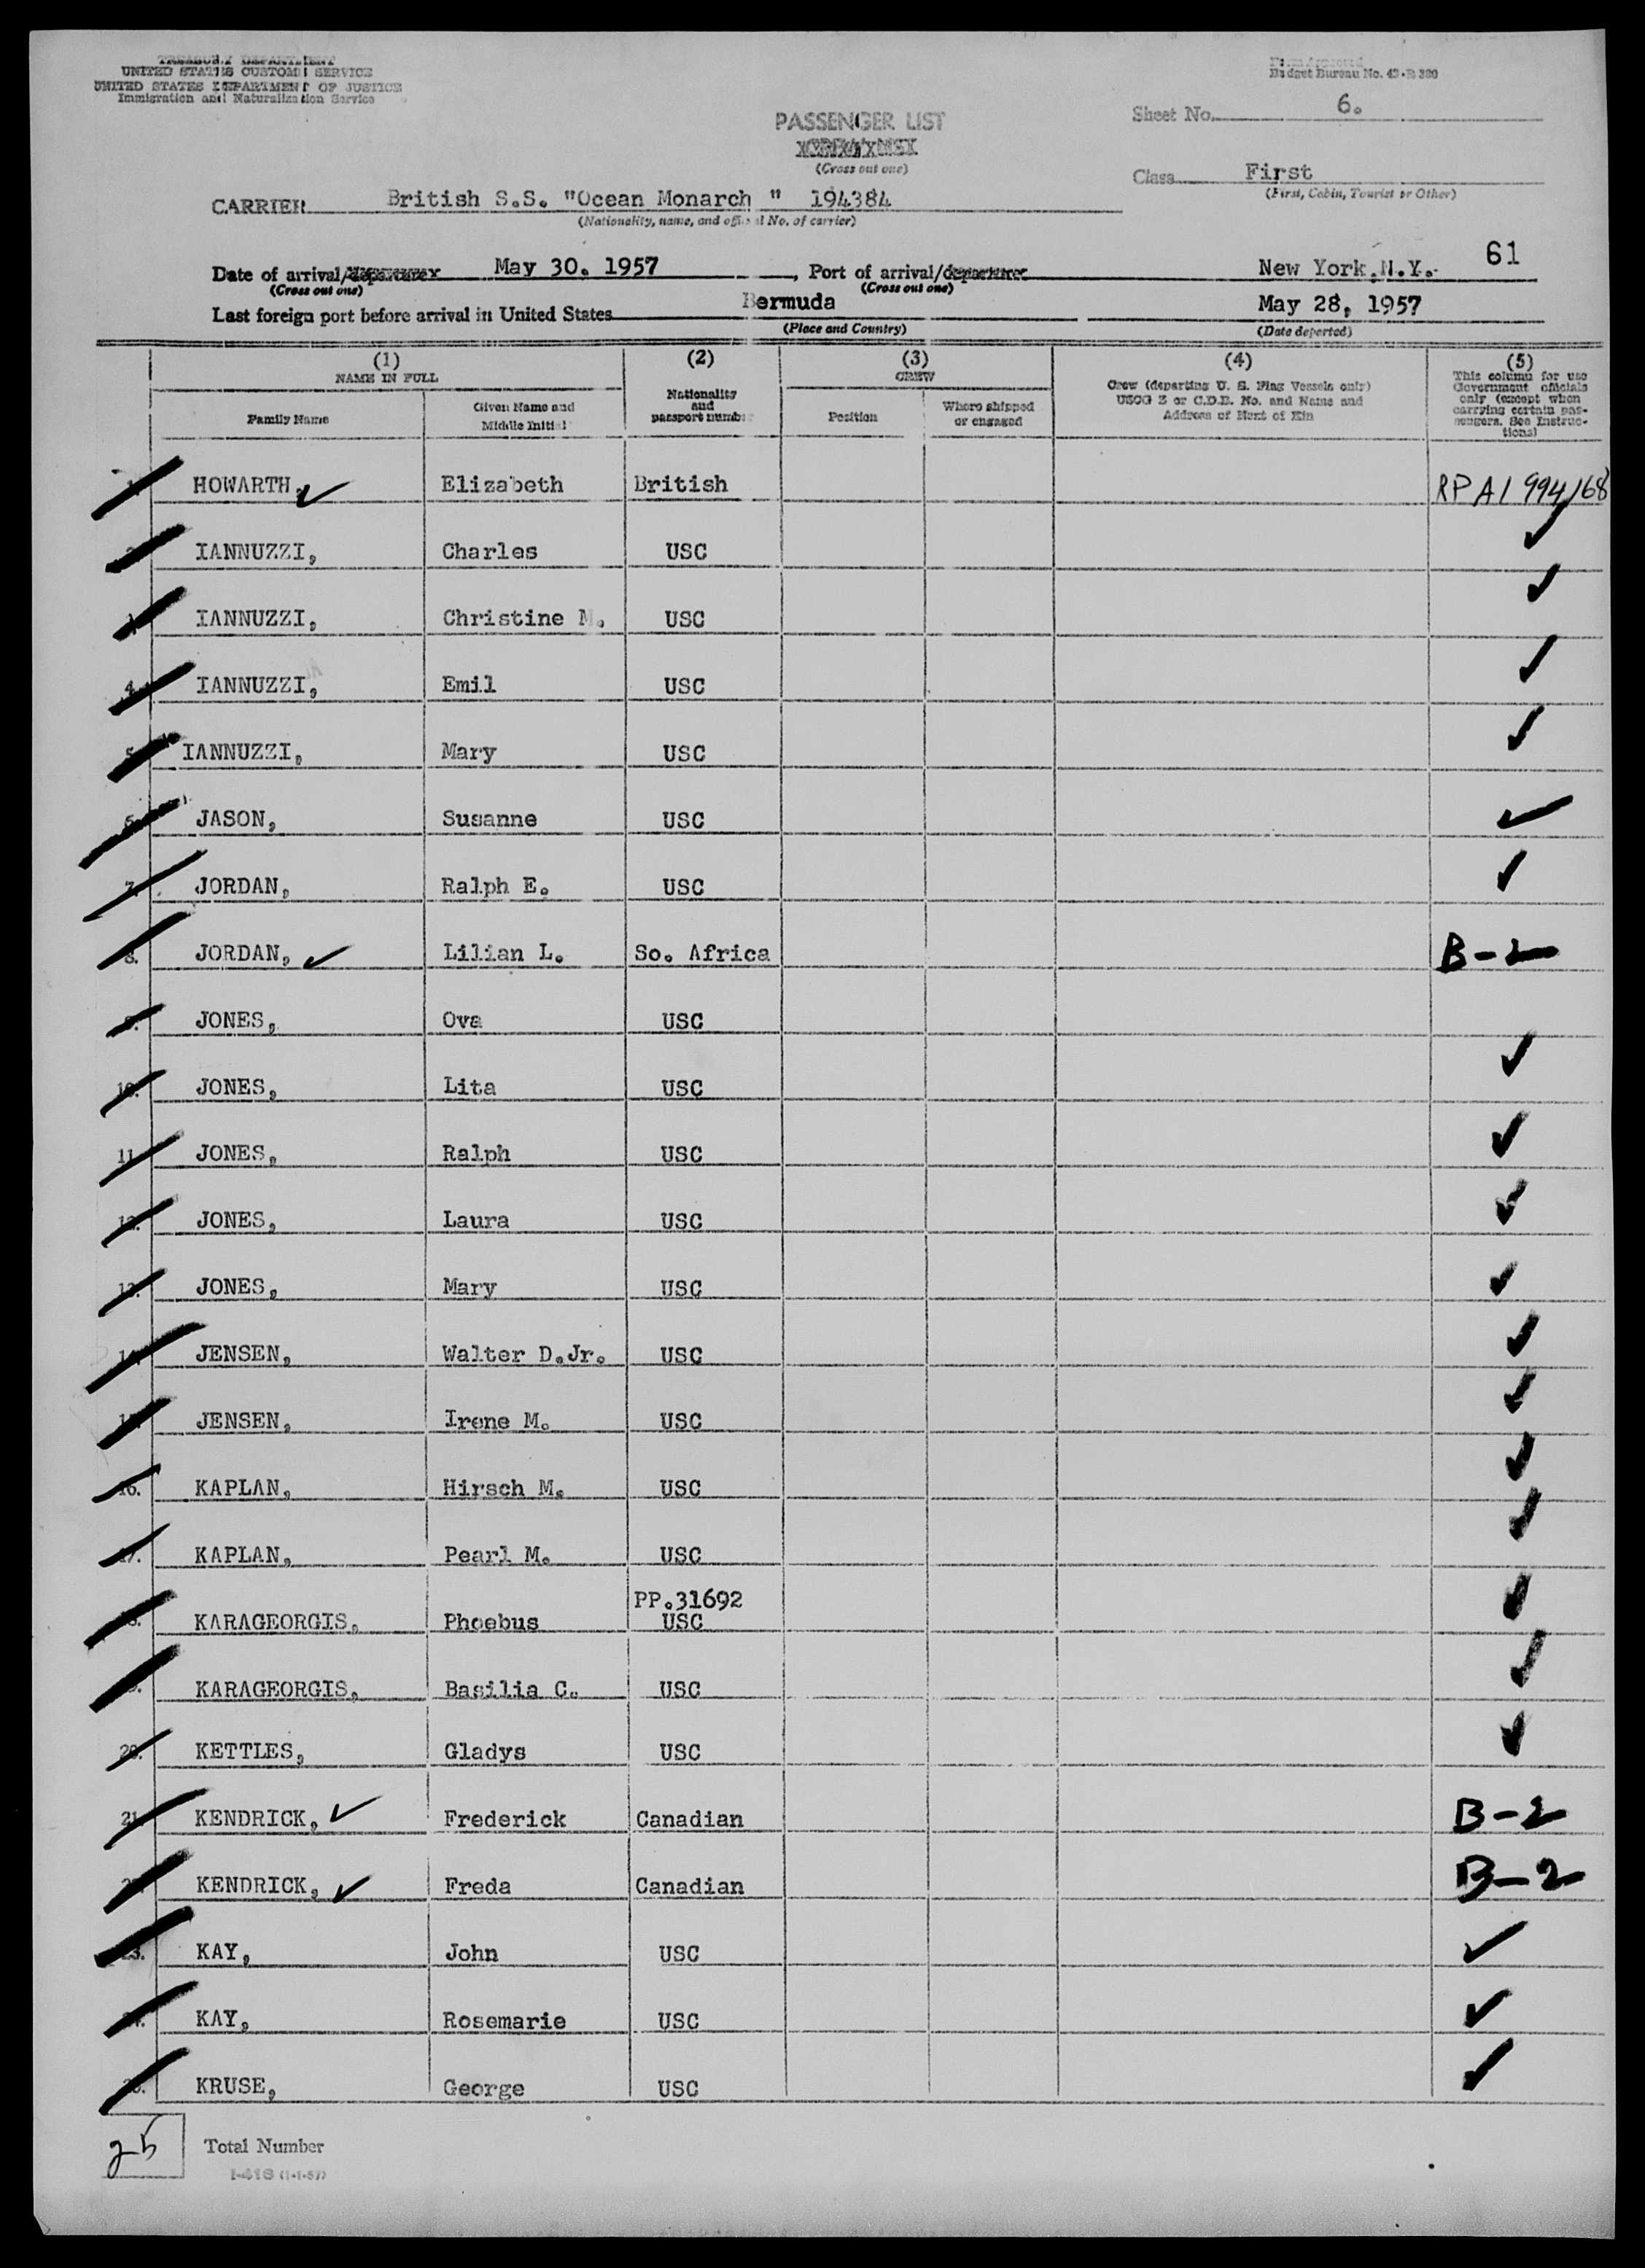 TREASURY DEPARTMENT
UNITED STATES CUSTOMS SERVICE
UNITED STATES DEPARTMENT OF JUSTICE
Immigration and Naturalization Service
Form Approved
Budget Bureau No. 43-R 390
Sheet No. 6.
PASSENGER LIST
(Cross out one)
Class First
(First, Cabin, Tourist or Other)
CARRIER British S.S. "Ocean Monarch " 194384
(Nationality, name, and official No. of carrier)
61
Date of arrival/departure May 30. 1957, Port of arrival/departure New York.N.Y.
(Cross out one) (Cross out one)
Last foreign port before arrival in United States Bermuda May 28, 1957
(Place and Country) (Date departed)
(1) (2) (3) (4) (5)
NAME IN FULL
Family Name
Given Name and Middle Initial
Nationality and passport number
CREW
Position
Where shipped or engaged
Crew (departing U. S. Flag Vessels only)
USCG Z or C.D.B. No. and Name and
Address of Next of Kin
This column for use
Government officials
only (except when
carrying certain pas-
sengers. See Instruc-
tions)
HOWARTH, Elizabeth British RPA1 994168
IANNUZZI, Charles USC
IANNUZZI, Christine M. USC
4. IANNUZZI, Emil USC
5. IANNUZZI, Mary USC
6. JASON, Susanne USC
7. JORDAN, Ralph E. USC
8. JORDAN, Lilian L. So. Africa B-2
9. JONES, Ova USC
10. JONES, Lita USC
11. JONES, Ralph USC
12. JONES, Laura USC
13. JONES, Mary USC
14. JENSEN, Walter D.Jr. USC
15. JENSEN, Irene M. USC
16. KAPLAN, Hirsch M. USC
17. KAPLAN, Pearl M. USC
PP.31692
KARAGEORGIS, Phoebus USC
KARAGEORGIS, Basilia C. USC
20. KETTLES, Gladys USC
21. KENDRICK, Frederick Canadian B-2
KENDRICK, Freda Canadian B-2
23. KAY, John USC
24. KAY, Rosemarie USC
25. KRUSE, George USC
25 Total Number
I-418 (1-1-57)